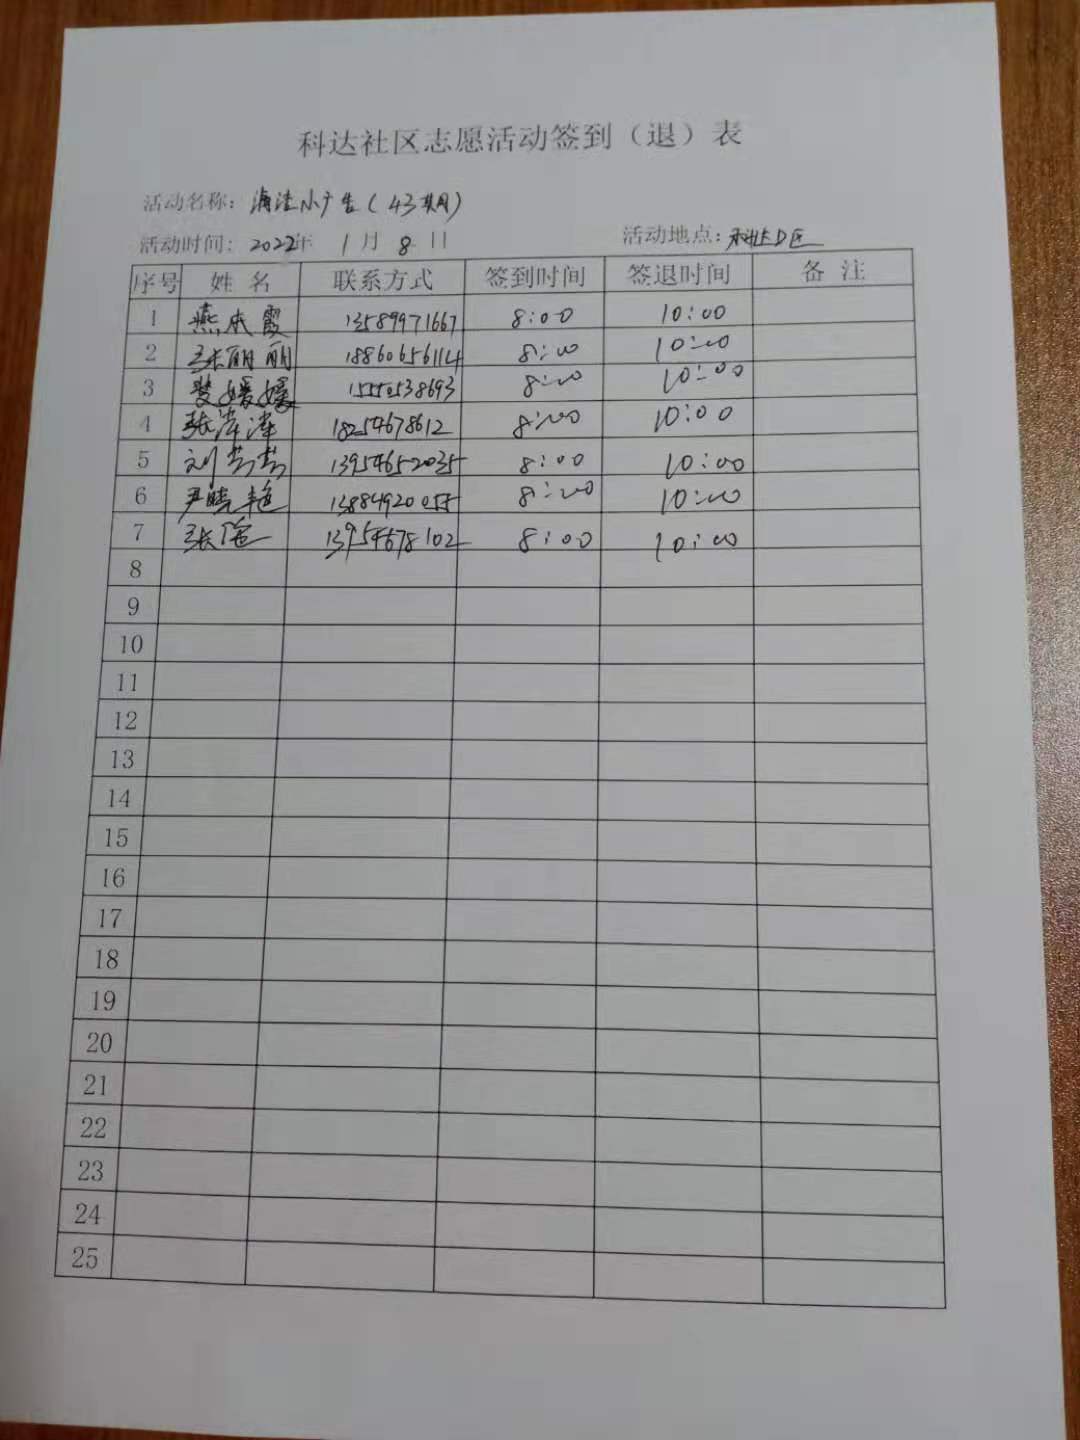 科达社区志愿活动签到（退）表
活动名称：清洁小广告（43期）
活动时间：2022年 1月 8日 活动地点：科达D区
序号 姓名 联系方式 签到时间 签退时间 备注
1 燕本霞 13589971667 8:00 10:00
2 张丽丽 18860656114 8:00 10:00
3 媛媛 15550538693 8:00 10:00
4 张萍萍 18254678612 8:00 10:00
5 刘芳芳 13954652035 8:00 10:00
6 尹晓艳 13884920055 8:00 10:00
7 张 13954678102 8:00 10:00
8
9
10
11
12
13
14
15
16
17
18
19
20
21
22
23
24
25